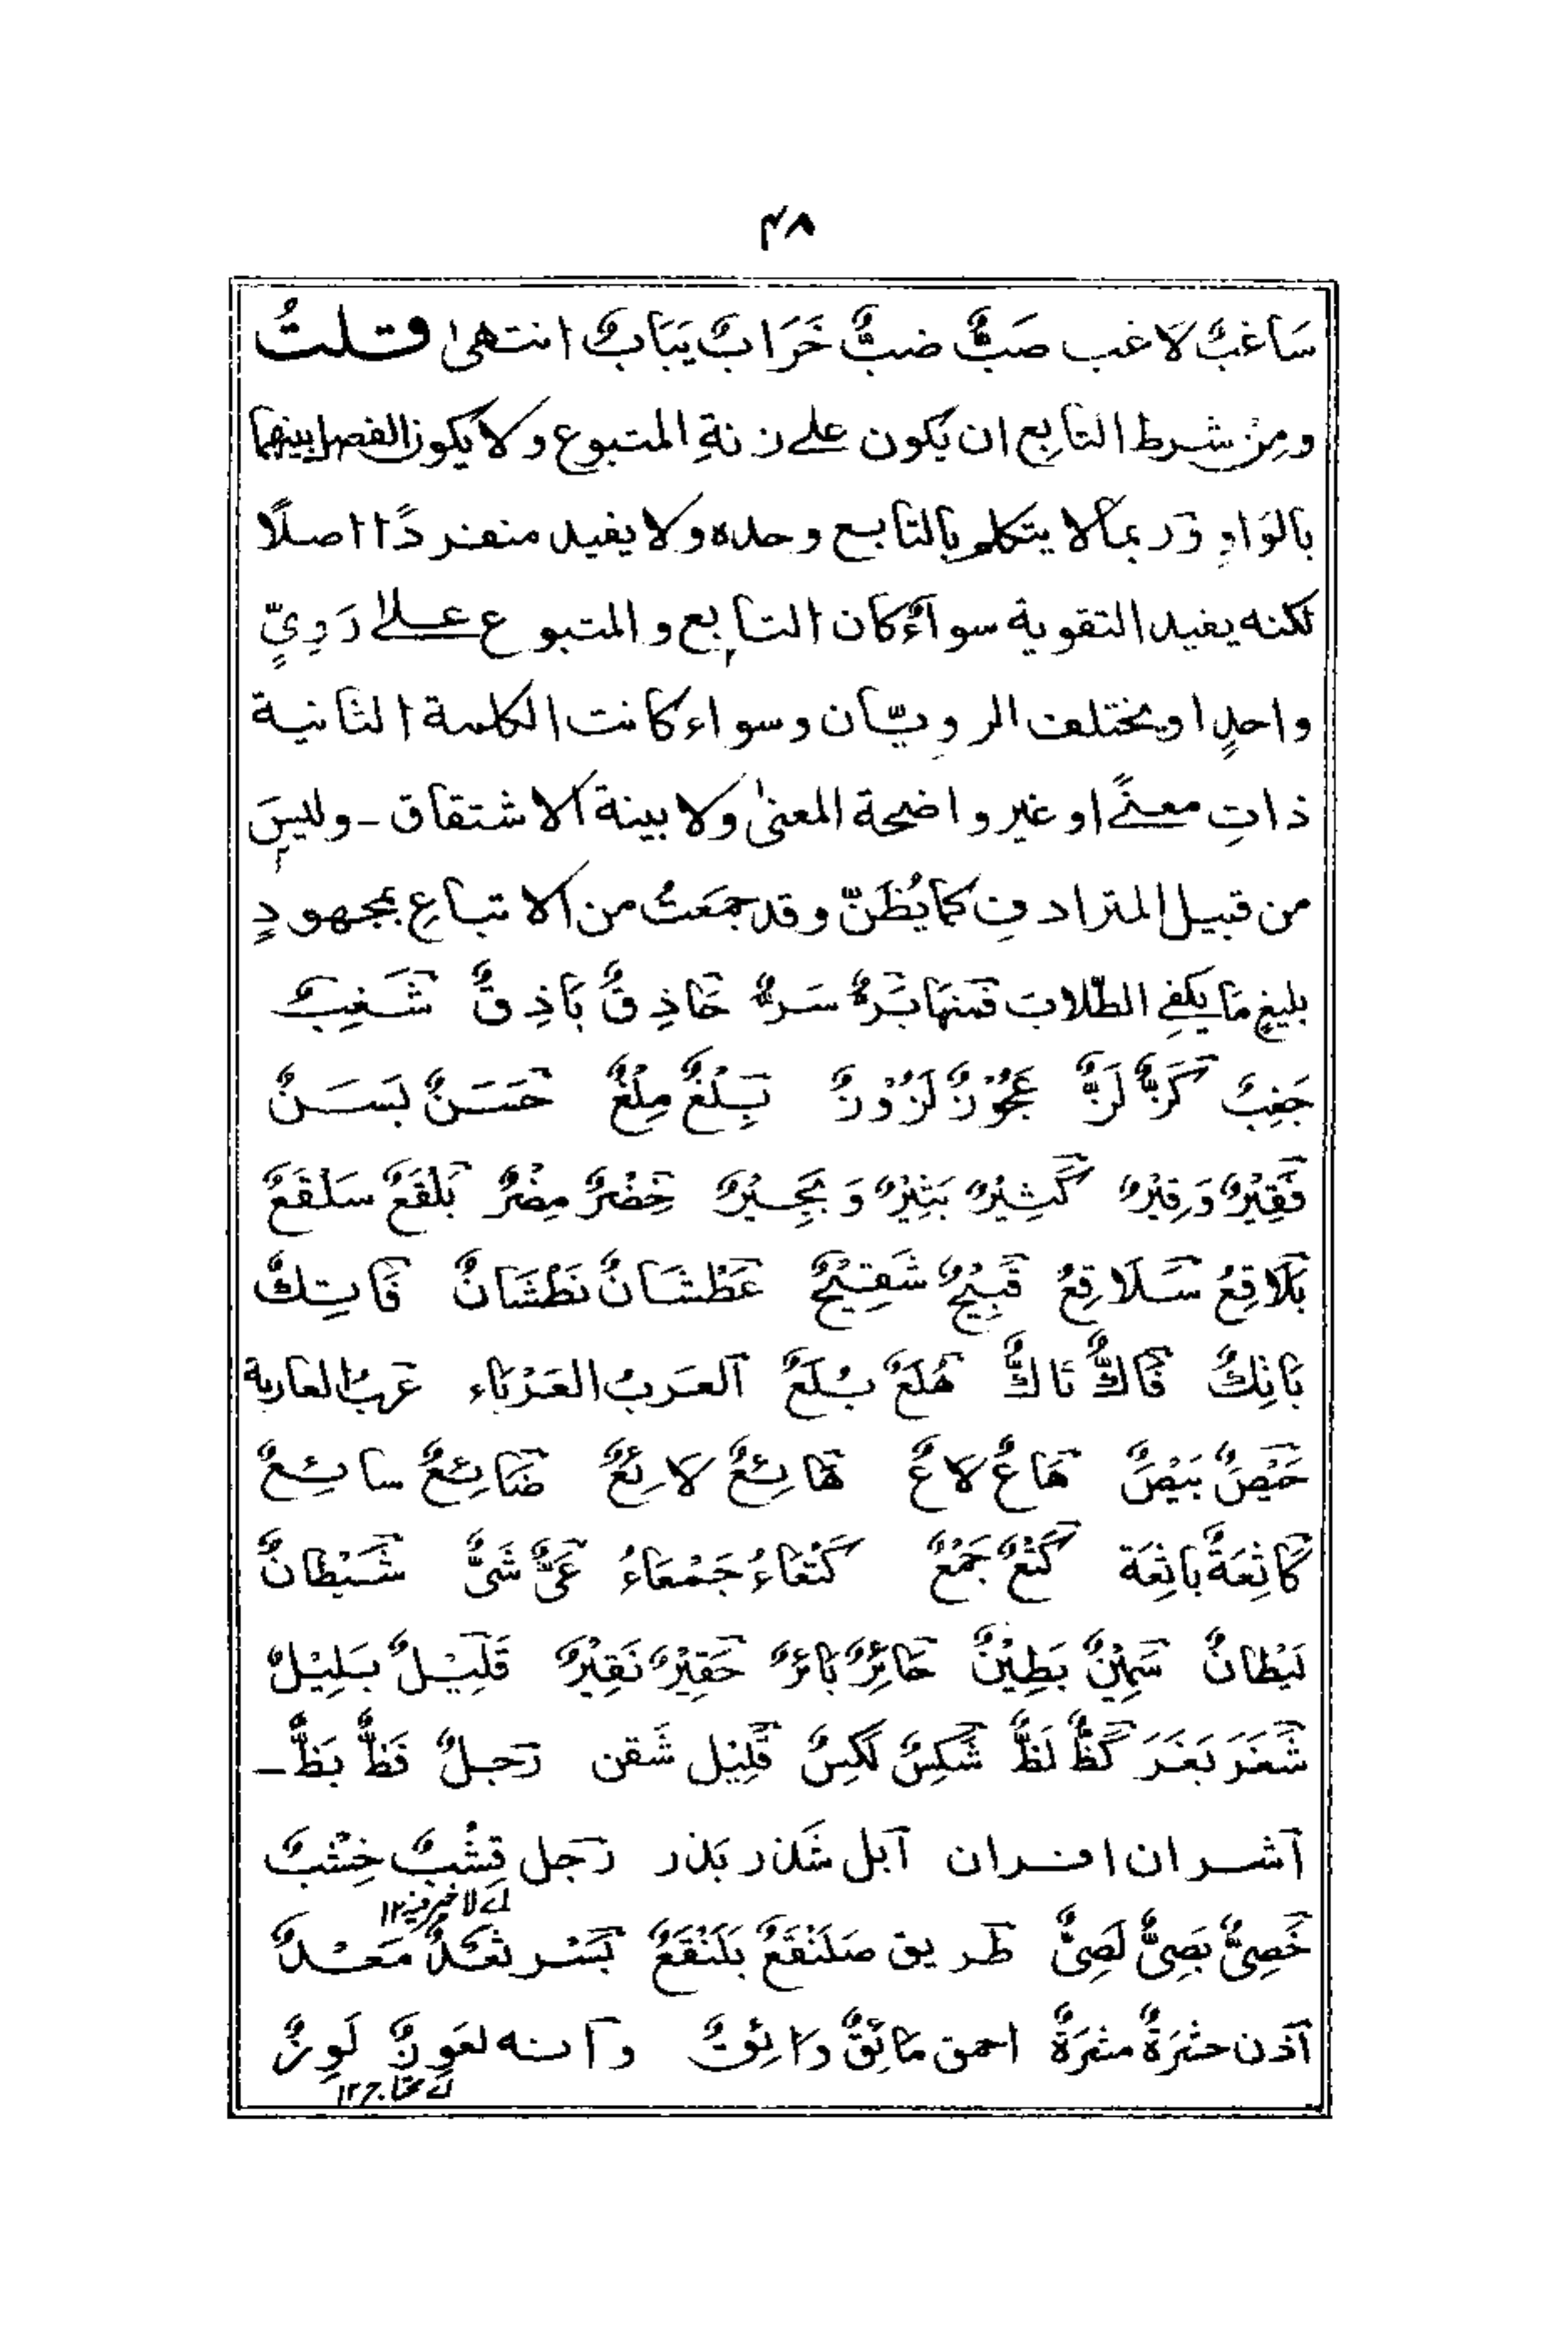 ٤٨
سَاغبٌ لاغب صَبٌّ ضبٌّ خَرَابٌ يَبَابٌ انتهىٰ قلتُ
ومِنْ شرط التابِع ان يكون على زنةِ المتبوع ولا يكون الفصل بينهما
بالوَاوِ وَربما لا يتكلم بالتابع وحده ولا يفيد منفردًا اصلًا
لكنه يفيد التقوية سوآءٌ كان التابع والمتبوع على رَوِيٍّ
واحدٍ او يختلف الرويّان وسواء كانت الكلمة الثانية
ذاتِ معنًى او غير واضحة المعنىٰ ولا بينة الاشتقاق - وليسَ
من قبيل المترادفِ كما يُظَنّ وقد جمَعتُ من الاتباعِ بمجهودٍ
بليغٍ مَا يكفي الطّلابَ فمنهَا بَرٌّ سَرٌّ حَاذِقٌ بَاذِقٌ شَغِبٌ
جَغِبٌ كَزٌّ لَزٌّ عَجُوْزٌ لَزُوْزٌ بِلْغٌ مِلْغٌ حَسَنٌ بَسَنٌ
فَقِيْرٌ وَقِيْرٌ كَثِيْرٌ بَثِيْرٌ وَ بَجِيْرٌ خِضْرٌ مِضْرٌ بَلْقَعٌ سَلْقَعٌ
بَلَاقِعُ سَلَاقِعُ قَبِيْحٌ شَقِيْحٌ عَطْشَانٌ نَطْشَانٌ فَاتِكٌ
بَانِكٌ فَاكٌّ تَاكٌّ هُلَعٌ بُلَعٌ العَرَبُ العَرْبَاء عَربُ العاربة
حَيْصٌ بَيْصٌ هَاعٌ لاعٌ هَائِعٌ لائِعٌ ضَائِعٌ سائِعٌ
كَاثِعَةٌ بَاثِعَة كَتْعٌ جَمْعٌ كَتْعَاءُ جَمْعَاءُ عَيٌّ شَيٌّ شَيْطَانٌ
لَيْطانٌ سَمِيْنٌ بَطِيْنٌ حَائِرٌ بَائرٌ حَقِيْرٌ نَقِيْرٌ قَلِيْلٌ بَلِيْلٌ
شَغَرَ بَغَرَ كَظٌّ لَظٌّ شَكِسٌ لَكِسٌ قَلِيْل شَقن رَجلٌ فَظٌّ بَظٌّ -
اشران افران ابل شَذر بَذر رَجل قِشْبٌ خِشْبٌ
اے لا خير فيه ١٢
خَصِيٌّ بَصِيٌّ لَصِيٌّ طريق صَلَنْقَعٌ بَلَنْقَعٌ بَسْر ثَعْدٌ مَعْدٌ
اذن حشْرَةٌ مشْرَةٌ احمق مَائِقٌ دَائِقٌ وانه لعَوِزٌ لَوِزٌ
اے محتاج ١٢